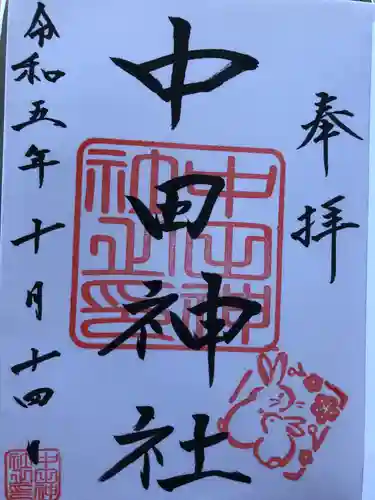 奉拝
中田神社
令和五年十月十四日
中田神社之印